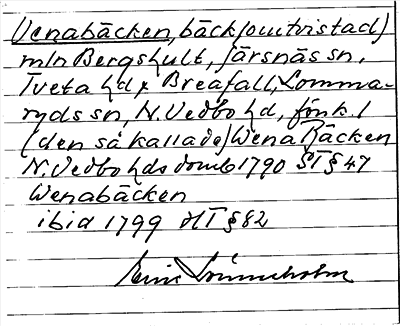 Venabäcken, bäck (outvistad)
mln Bergshult, Järsnäs sn,
Tveta hd x Breafall, Lomma-
ryds sn, N. Vedbo hd, Jönk. l
(den så kallade) Wena Bäcken
N. Vedbo hds domb 1790 ST § 47
Wenabäcken
ibid 1799 HT § 82